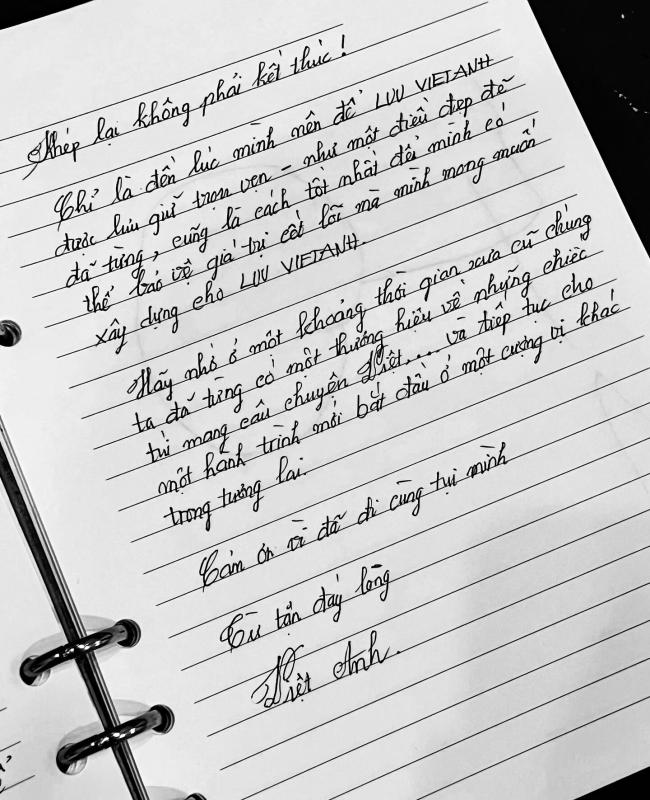 Khép lại không phải kết thúc!
Chỉ là đến lúc mình nên để LUU VIETANH
được lưu giữ trọn vẹn - như một điều đẹp đẽ
đã từng, cũng là cách tốt nhất để mình có
thể bảo vệ giá trị cốt lõi mà mình mong muốn
xây dựng cho LUU VIETANH.
Hãy nhớ ở một khoảng thời gian xưa cũ chúng
ta đã từng có một thương hiệu về những chiếc
túi mang câu chuyện Việt.... và tiếp tục cho
một hành trình mới bắt đầu ở một cương vị khác
trong tương lai.
Cảm ơn vì đã đi cùng tụi mình
Từ tận đáy lòng
Việt Anh.